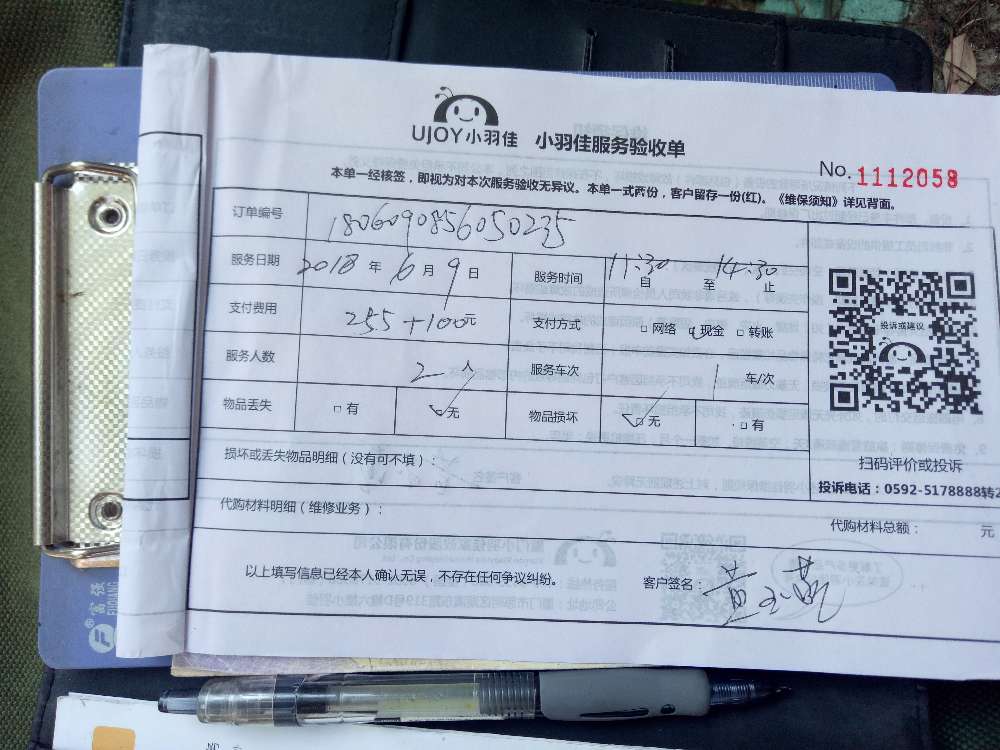 UJOY小羽佳 小羽佳服务验收单
No. 1112058
本单一经核签，即视为对本次服务验收无异议。本单一式两份，客户留存一份(红)。《维保须知》详见背面。
订单编号 1806090856050235
服务日期 2018 年 6 月 9 日 服务时间 11:30 自 至 14:30 止
支付费用 255+100元 支付方式 □网络 ☑现金 □转账
服务人数 2 人 服务车次 1 车/次
物品丢失 □有 ☑无 物品损坏 ☑无 □有
投诉或建议
扫码评价或投诉
投诉电话：0592-5178888转2
损坏或丢失物品明细（没有可不填）：
代购材料明细（维修业务）：
代购材料总额： 元
以上填写信息已经本人确认无误，不存在任何争议纠纷。 客户签名：
富强